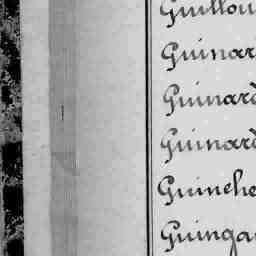 Guillou
Guinar
Guinard
Guinard
Guinehe
Guingau